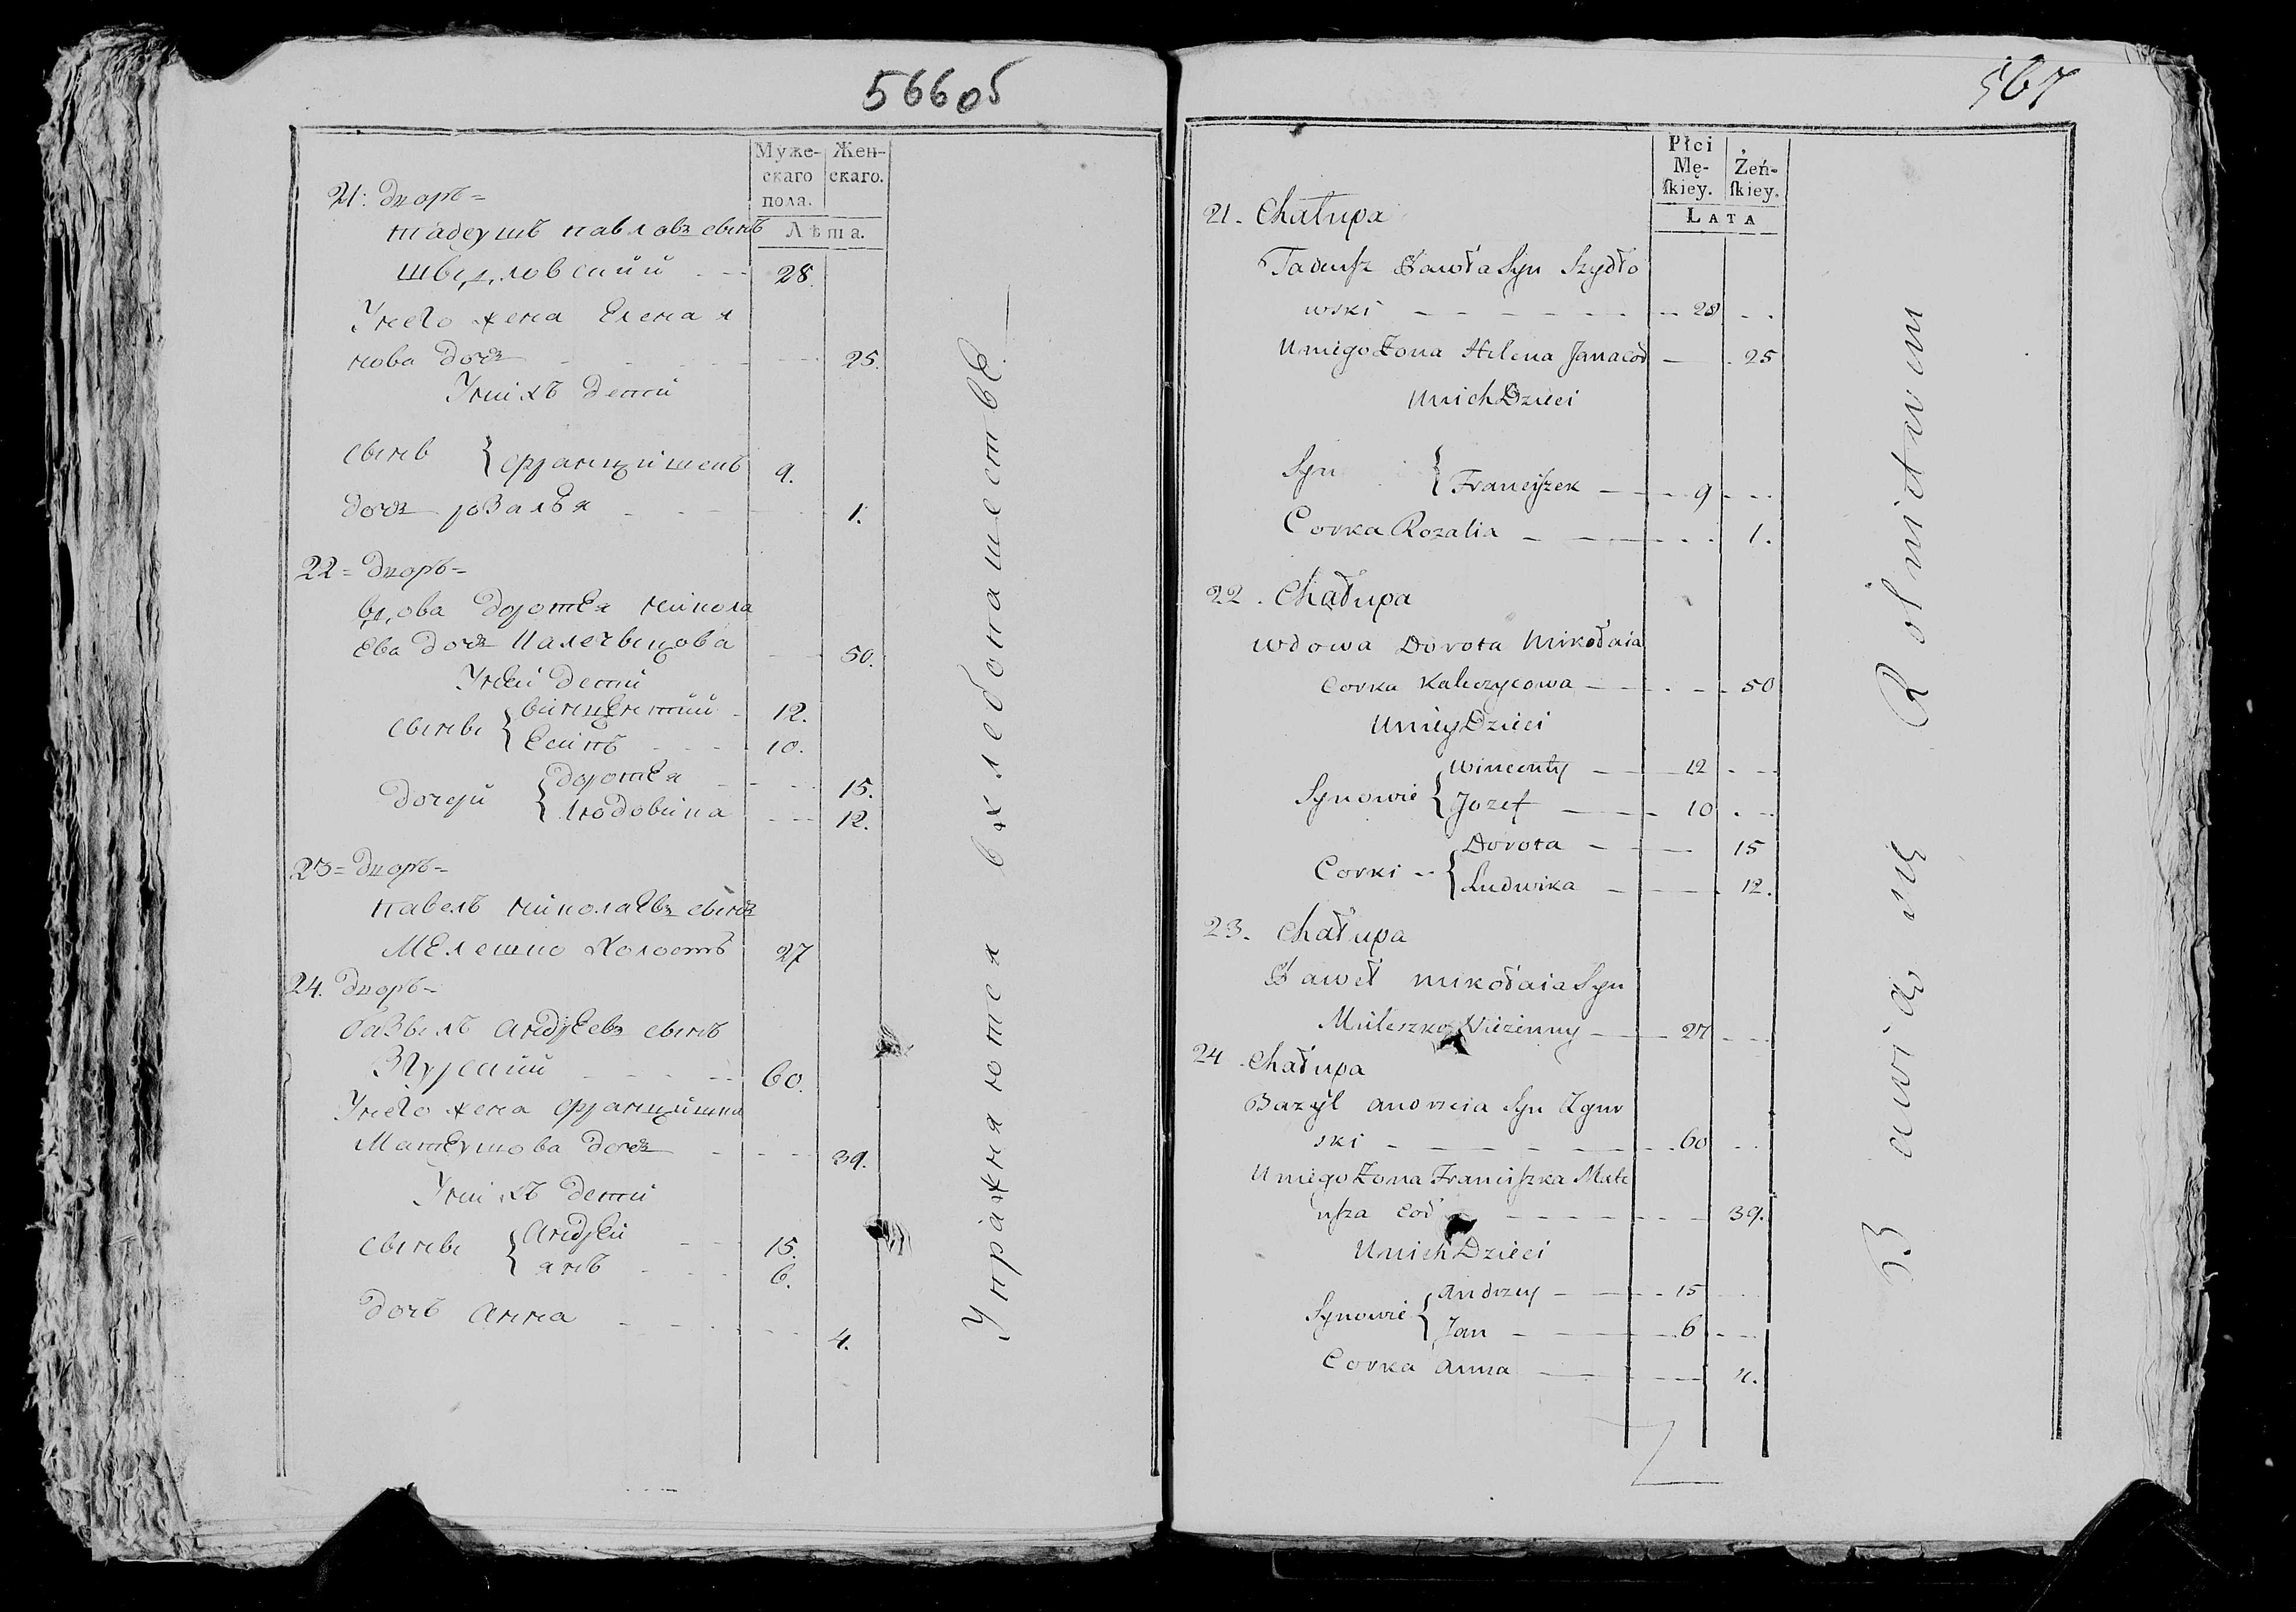 566об
Муже-
скаго
пола.
Жен-
скаго.
Лѣта.
21: Дворъ =
тадеушъ павловъ сынъ
шыдловский 28.
У него жена Елена я
нова дочь 25.
У нихъ дети
сынъ { францишекъ 9.
дочь розалья 1.
22 = Дворъ =
вдова доротея никола
ева дочь калечыцова 50.
У ней дети
сыны { винцентий 12.
Есипъ 10.
дочери { доротея 15.
людовика 12.
23 = Дворъ =
павелъ николаевъ сынъ
Мелешко холостъ 27
24. Дворъ =
базылъ андреевъ сынъ
Згурский 60.
У него жена францишка
Матеушова дочь 39.
У нихъ дети
сыны { андрей 15.
янъ 6.
дочь анна 4.
Упражняются в хлебопашестве.
567
Płci
Mę-
ſkiey.
Żeń-
ſkiey.
LATA
21. Chałupa
Tadeusz Pawła Syn Szydło
wski 28
U niego Żona Helena Jana cor 25
U nich Dzieci
Syn { Franciszek 9
Corka Rozalia 1.
22. Chałupa
Wdowa Dorota Mikołaia
Corka Kaleczycowa 50
U niey Dzieci
Synowie { Wincenty 12
Jozef 10
Corki { Dorota 15
Ludwika 12.
23. Chałupa
Paweł Mikołaia Syn
Mieleszko Nieżenny 27
24. Chałupa
Bazyl Andrzeia Syn Zgur
ski 60
U niego Żona Franciszka Mate
usza cor 39.
U nich Dzieci
Synowie { Andrzey 15
Jan 6
Corka Anna 4.
Bawią się Rolnictwem